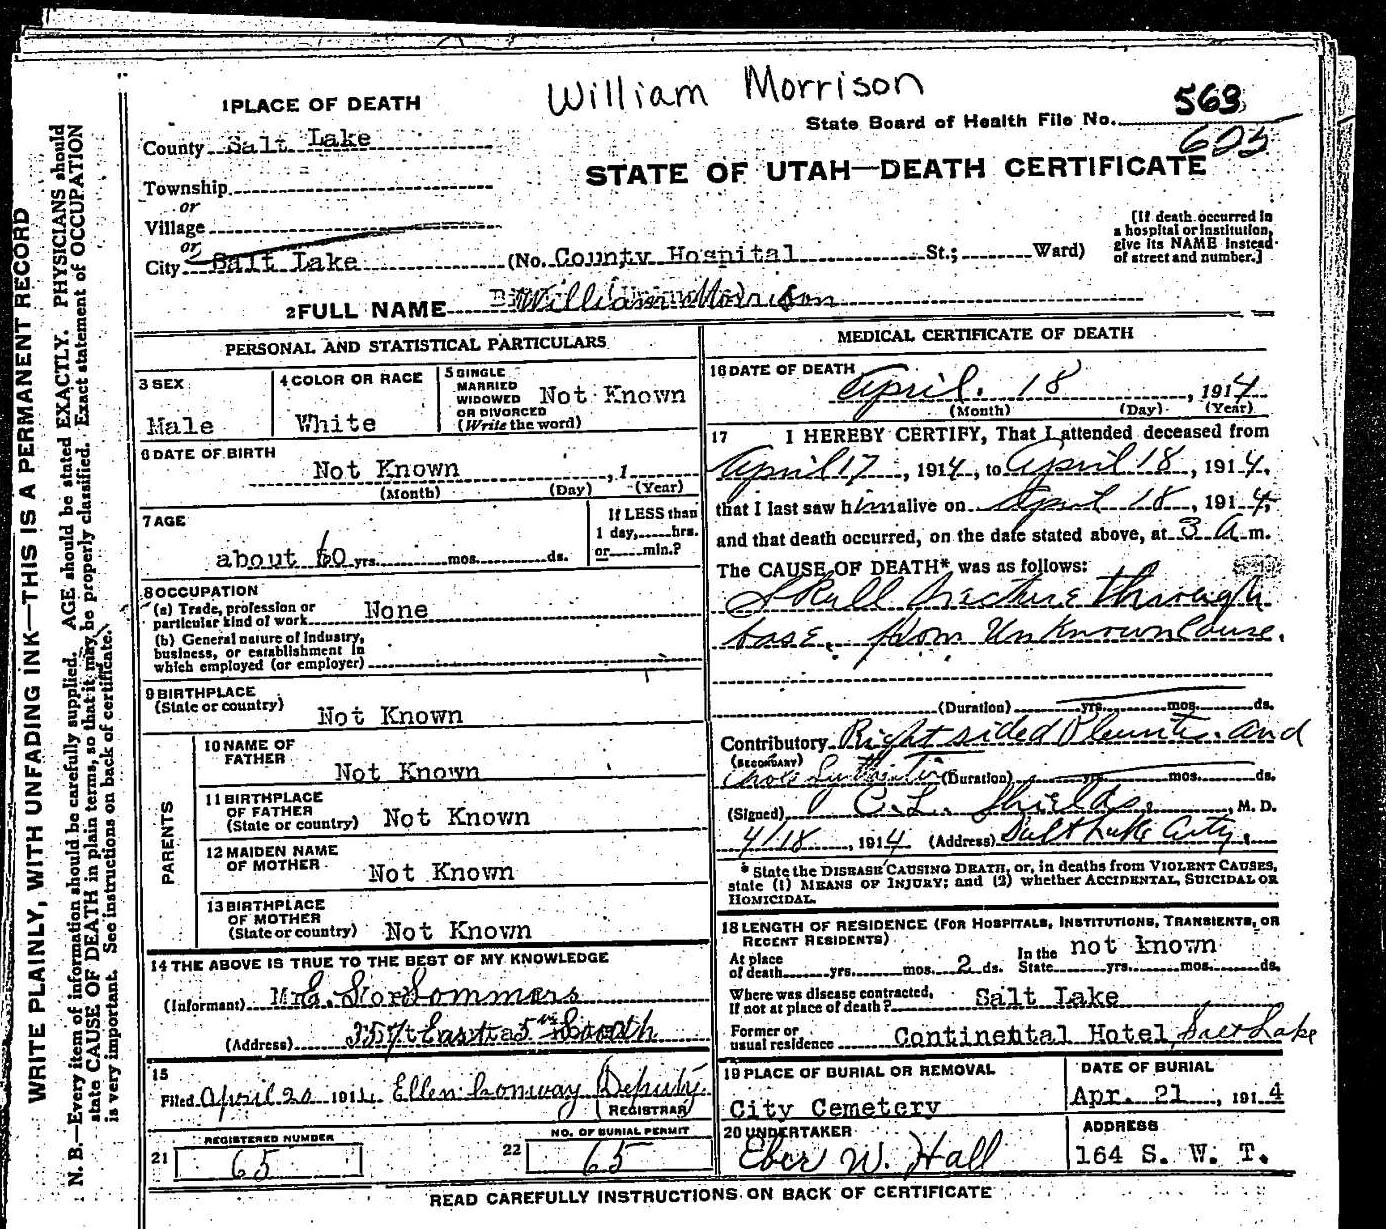 William Morrison
1 PLACE OF DEATH
State Board of Health File No. 563
County Salt Lake
STATE OF UTAH—DEATH CERTIFICATE
Township
or
Village
or
City Salt Lake (No. County Hospital St.; Ward)
[If death occurred in
a hospital or institution,
give its NAME instead
of street and number.]
2 FULL NAME William Morrison
PERSONAL AND STATISTICAL PARTICULARS
3 SEX
Male
4 COLOR OR RACE
White
5 SINGLE
MARRIED
WIDOWED
OR DIVORCED
(Write the word)
Not Known
6 DATE OF BIRTH
Not Known , 1
(Month) (Day) (Year)
7 AGE
about 60 yrs. mos. ds.
If LESS than
1 day, hrs.
or min.?
8 OCCUPATION
(a) Trade, profession or
particular kind of work None
(b) General nature of industry,
business, or establishment in
which employed (or employer)
9 BIRTHPLACE
(State or country)
Not Known
PARENTS
10 NAME OF
FATHER
Not Known
11 BIRTHPLACE
OF FATHER
(State or country) Not Known
12 MAIDEN NAME
OF MOTHER Not Known
13 BIRTHPLACE
OF MOTHER
(State or country) Not Known
14 THE ABOVE IS TRUE TO THE BEST OF MY KNOWLEDGE
(Informant)
(Address)
15
Filed April 20 1914 Ellen Conway Deputy
REGISTRAR
21
REGISTERED NUMBER
65
22
NO. OF BURIAL PERMIT
65
MEDICAL CERTIFICATE OF DEATH
16 DATE OF DEATH
April. 18 , 1914
(Month) (Day) (Year)
17 I HEREBY CERTIFY, That I attended deceased from
April 17 , 1914, to April 18 , 1914,
that I last saw him alive on April 18 , 1914,
and that death occurred, on the date stated above, at 3 A m.
The CAUSE OF DEATH* was as follows:
Skull fracture through
base. from Unknown Cause.
(Duration) yrs. mos. ds.
Contributory Right sided and
(SECONDARY)
(Duration) yrs. mos. ds.
(Signed) C. L. Shields. , M. D.
4/18 , 1914 (Address) Salt Lake City.
* State the DISEASE CAUSING DEATH, or, in deaths from VIOLENT CAUSES,
state (1) MEANS OF INJURY; and (2) whether ACCIDENTAL, SUICIDAL OR
HOMICIDAL.
18 LENGTH OF RESIDENCE (FOR HOSPITALS, INSTITUTIONS, TRANSIENTS, OR
RECENT RESIDENTS)
At place
of death yrs. mos. 2 ds.
In the
State yrs. mos. ds.
not known
Where was disease contracted,
If not at place of death? Salt Lake
Former or
usual residence Continental Hotel, Salt Lake
19 PLACE OF BURIAL OR REMOVAL
City Cemetery
DATE OF BURIAL
Apr. 21 , 1914
20 UNDERTAKER
Eber W. Hall
ADDRESS
164 S. W. T.
READ CAREFULLY INSTRUCTIONS ON BACK OF CERTIFICATE
WRITE PLAINLY, WITH UNFADING INK—THIS IS A PERMANENT RECORD
N. B.—Every item of information should be carefully supplied. AGE should be stated EXACTLY. PHYSICIANS should
state CAUSE OF DEATH in plain terms, so that it may be properly classified. Exact statement of OCCUPATION
is very important. See instructions on back of certificate.